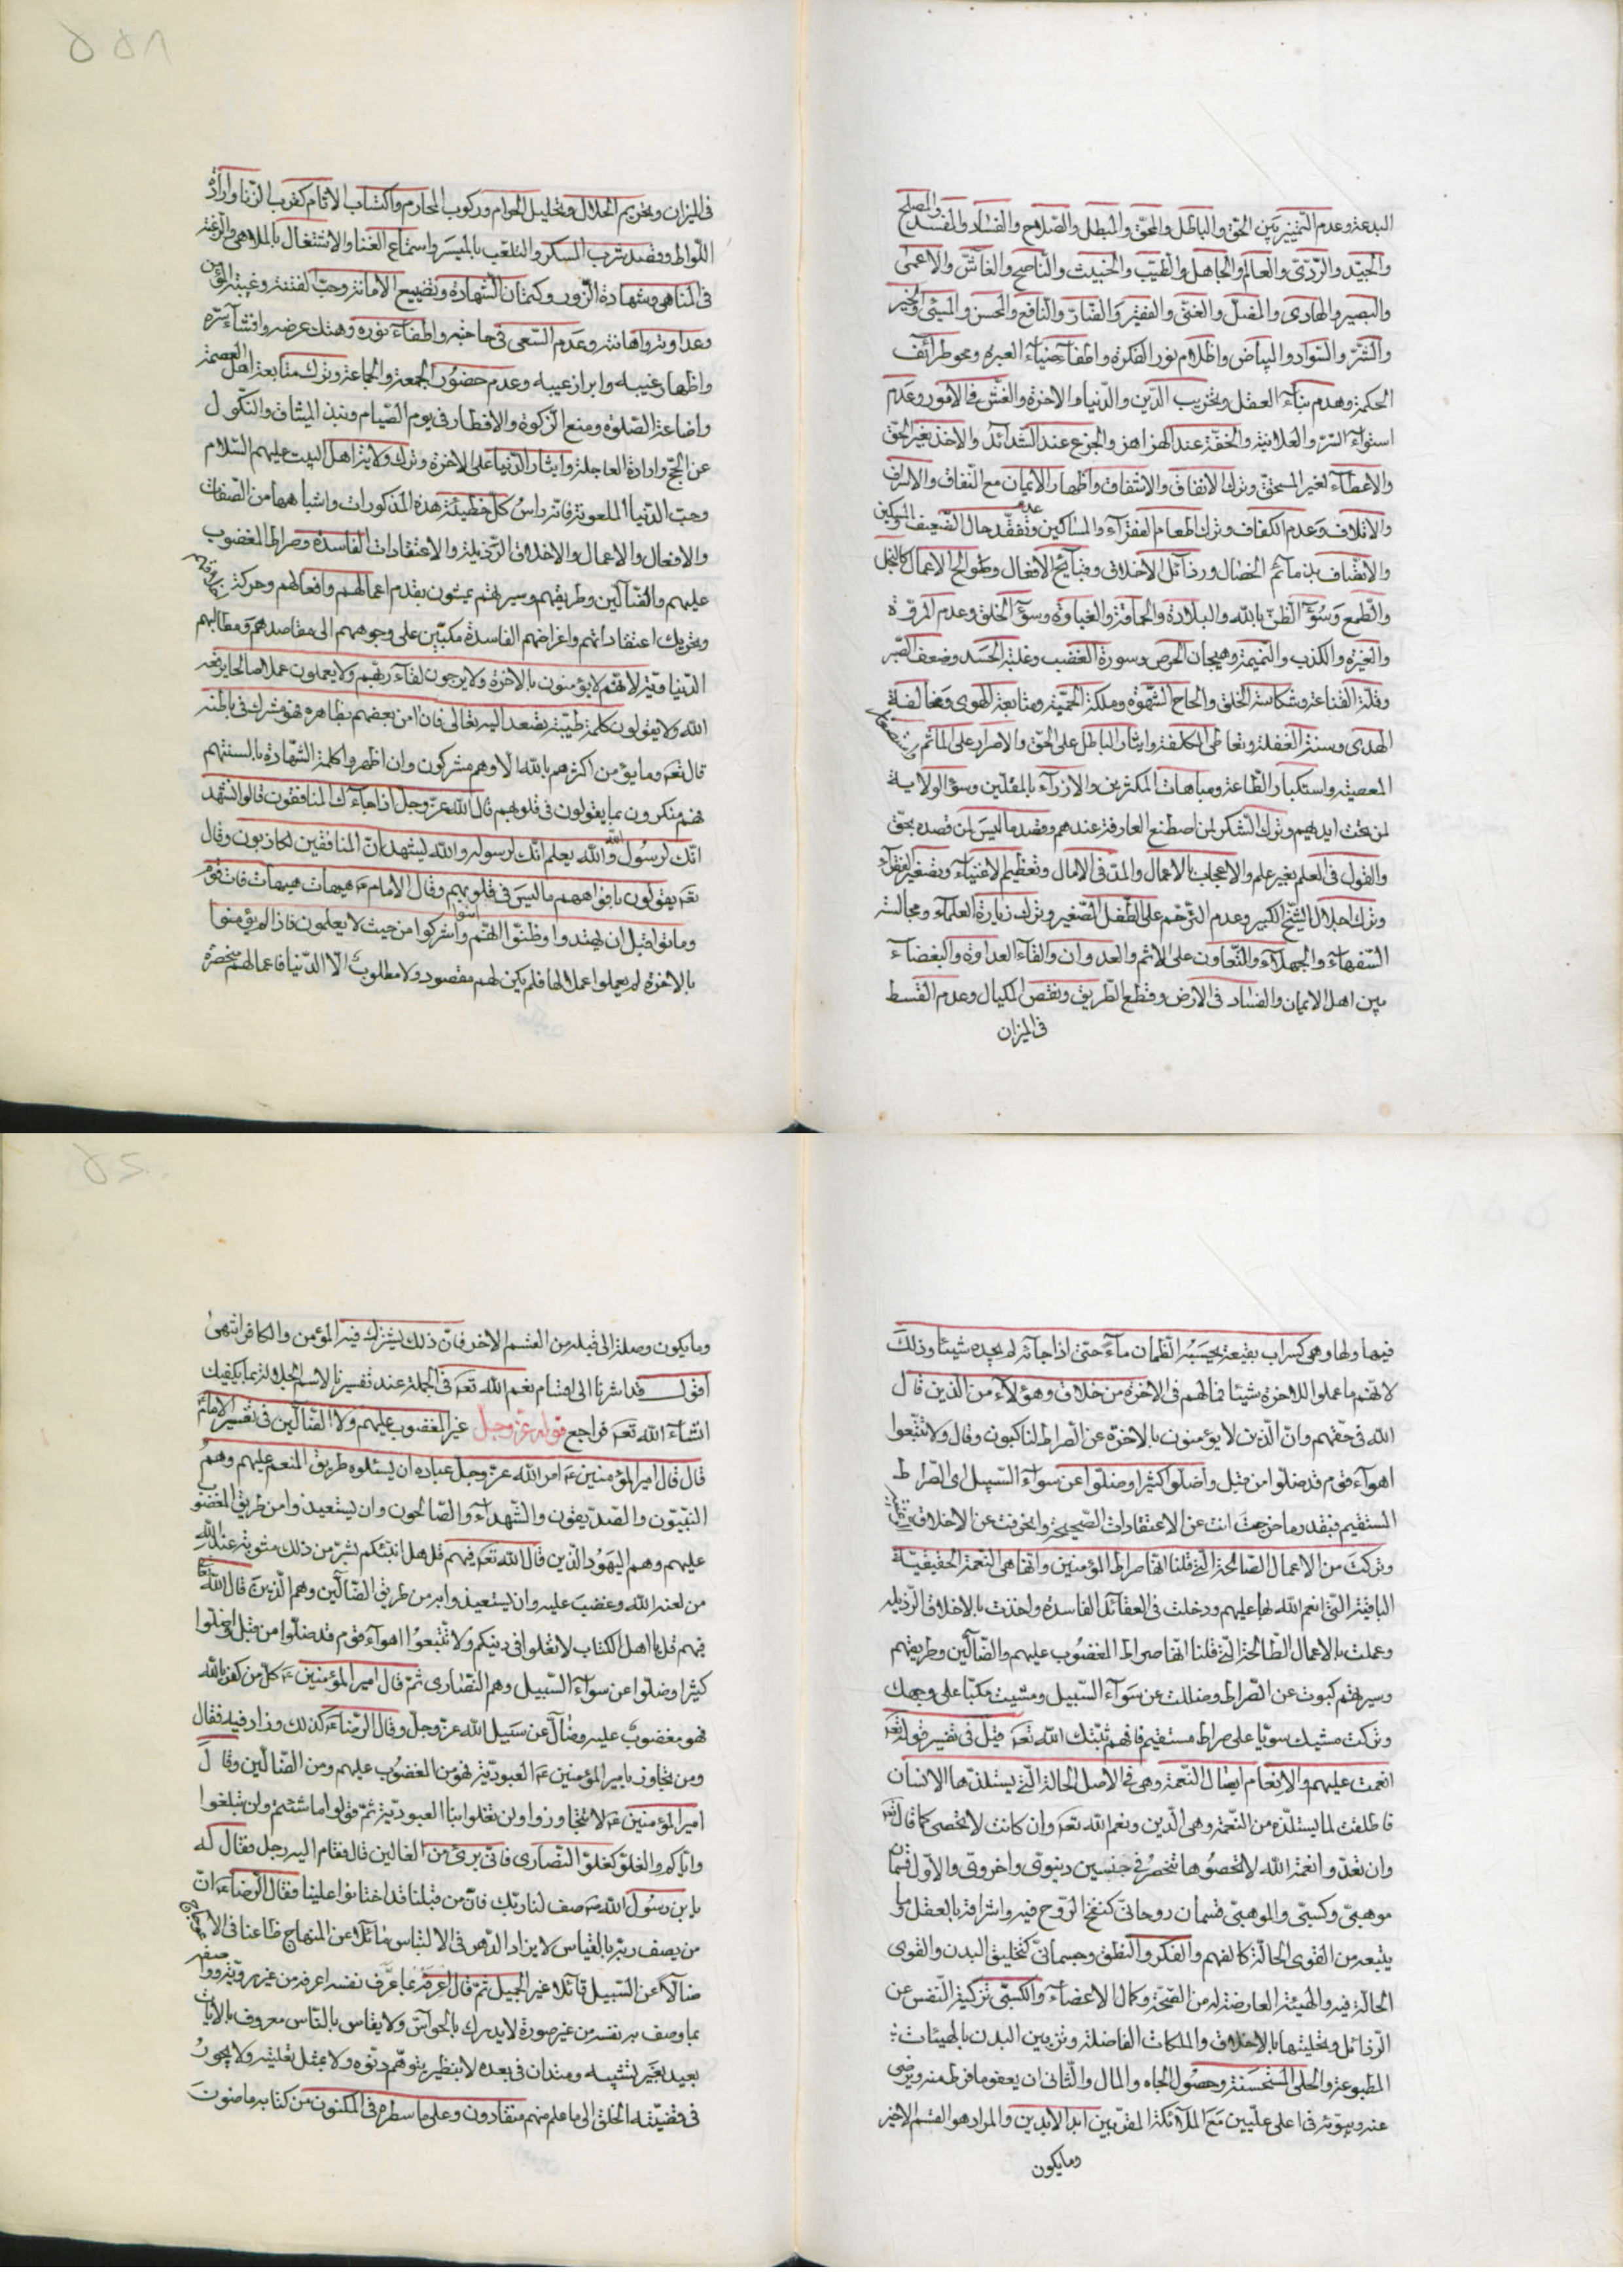 البدعة وعدم التمييز بين الحق والباطل والمحق والمبطل والصلاح والفساد والمفسد والمصلح
والجيد والردى والعالم والجاهل والطيب والخبيث والناصح والغاش والاعمى
والبصير والهادى والمضل والغنى والفقير والضار والنافع والمحسن والمسئ والخير
والشر والسواد والبياض واظلام نور الفكرة واطفآء ضياء العبره ومحو طرائف
الحكمة وهدم بنآء العقل وتخريب الدين والدنيا والاخرة والغش فى الامور وعدم
استوآء السر والعلانية والخفة عند الهزاهز والجزع عند الشدائد والاخذ بغير الحق
والاعطآء لغير المستحق وترك الانفاق والاشفاق واظهار الايمان مع النفاق والاسراف
والاتلاف وعدم الكفاف وترك اطعام الفقرآء والمساكين وعدم تفقد حال الضعيف والمسكين
والاتصاف بذمائم الخصال ورذائل الاخلاق وقبآئح الافعال وطوالح الاعمال كالبخل
والطمع وسوء الظن بالله والبلادة والحماقة والغباوة وسوء الخلق وعدم المروة
والغيرة والكذب والنميمة وهيجان الحرص وسورة الغضب وغلبة الحسد وضعف الصبر
وقلة القناعة وشكاسة الخلق والحاح الشهوة وملكة الحمية ومتابعة الهوى ومخالفة
الهدى وسنة الغفلة وتعاطى الكلفة وايثار الباطل على الحق والاصرار على الماثم واستصغار
المعصية واستكبار الطاعة ومباهات المكثرين والازرآء بالمقلين وسوء الولاية
لمن تحت ايديهم وترك الشكر لمن اصطنع العارفة عندهم وقصد ما ليس لمن قصده بحق
والقول فى العلم بغير علم والاعجاب بالاعمال والمد فى الامال وتعظيم الاغنياء وتصغير الفقرآء
وترك اجلال الشيخ الكبير وعدم الترحم على الطفل الصغير وترك زيارة العلمآء ومجالسة
السفهاء والجهلاء والتعاون على الاثم والعدوان والقاء العداوة والبغضاء
بين اهل الايمان والفساد فى الارض وقطع الطريق ونقص المكيال وعدم القسط
فى الميزان
فى الميزان وتحريم الحلال وتحليل الحرام وركوب المحارم واكتساب الاثام كقرب الزنا وارادة
اللواط وقصد شرب المسكر والتلعب بالميسر واستماع الغنا والاشتغال بالملاهى والرغبة
فى المناهى وشهادة الزور وكتمان الشهادة وتضييع الامانة وحب الفتنة وغيبة المؤمن
وعداوته واهانته وعدم السعى فى حاجته واطفآء نوره وهتك عرضه وافشآء سره
واظهار غيبه وابراز عيبه وعدم حضور الجمعة والجماعة وترك متابعة اهل العصمة
واضاعة الصلوة ومنع الزكوة والافطار فى يوم الصيام ونبذ الميثاق والنكول
عن الحج وارادة العاجلة وايثار الدنيا على الاخرة وترك ولاية اهل البيت عليهم السلام
وحب الدنيا الملعونة فانه راس كل خطيئة هذه المذكورات واشباهها من الصفات
والافعال والاعمال والاخلاق الرذيلة والاعتقادات الفاسدة وصراط المغضوب
عليهم والضآلين وطريقهم وسيرهم يمشون بقدم اعمالهم وافعالهم وحركة
وتحريك اعتقاداتهم واغراضهم الفاسدة مكبين على وجوههم الى مقاصدهم ومطالبهم
الدنياوية لانهم لا يؤمنون بالاخرة ولا يرجون لقاء ربهم ولا يعملون عملا صالحا يرفعه
الله ولا يقولون كلمة طيبة تصعد اليه تعالى فان امن بعضهم بظاهره فهو مشرك فى باطنه
قال تعه وما يؤمن اكثرهم بالله الا وهم مشركون وان اظهروا كلمة الشهادة بالسنتهم
فهم منكرون بما يقولون فى قلوبهم قال الله عز وجل اذا جاءك المنافقون قالوا نشهد
انك لرسول الله والله يعلم انك لرسوله والله يشهد ان المنافقين لكاذبون وقال
تعه يقولون بافواههم ما ليس فى قلوبهم وقال الامام ع هيهات هيهات فات قوم
وماتوا قبل ان يهتدوا وظنوا انهم امنوا واشركوا من حيث لا يعلمون فاذا لم يؤمنوا
بالاخرة لم يعملوا عملا لها فلم يكن لهم مقصود ولا مطلوب الا الدنيا فاعمالهم منحصرة
فيها ولها وهى كسراب بقيعة يحسبه الظمان مآء حتى اذا جآئه لم يجده شيئا وذلك
لانهم ما عملوا للاخرة شيئا فما لهم فى الاخرة من خلاق وهؤلاء من الذين قال
الله فى حقهم وان الذين لا يؤمنون بالاخرة عن الصراط لناكبون وقال ولا تتبعوا
اهوآء قوم قد ضلوا من قبل واضلوا كثيرا وضلوا عن سوآء السبيل اى الصراط
المستقيم فبقدر ما خرجت انت عن الاعتقادات الصحيحة وانحرفت عن الاخلاق
وتركت من الاعمال الصالحة التى قلنا انها صراط المؤمنين وانها هى النعمة الحقيقية
الباقية التى انعم الله بها عليهم ودخلت فى العقائد الفاسدة واخذت بالاخلاق الرذيله
وعملت بالاعمال الطالحة التى قلنا انها صراط المغضوب عليهم والضآلين وطريقهم
وسيرهم كبوت عن الصراط وضللت عن سوآء السبيل ومشيت مكبا على وجهك
وتركت مشيك سويا على صراط مستقيم فافهم ثبتك الله تعه قيل فى تفسير قوله تعه
انعمت عليهم والانعام ايصال النعمة وهى فى الاصل الحالة التى يستلذها الانسان
فاطلقت لما يستلذه من النعمة وهى الدين ونعم الله تعه وان كانت لا تحصى كما قال تعه
وان تعدوا نعمة الله لا تحصوها تنحصر فى جنسين دنيوى واخروى والاول قسمان
موهبى وكسبى والموهبى قسمان روحانى كنفخ الروح فيه واشراقه بالعقل وما
يتبعه من القوى الحالة كالفهم والفكر والنطق وجسمانى كتخليق البدن والقوى
الحالة فيه والهيئة العارضة له من الصحة وكمال الاعضآء والكسبى تزكية النفس عن
الرذائل وتحليتها بالاخلاق والملكات الفاضلة وتزيين البدن بالهيئات
المطبوعة والحلى المستحسنة وحصول الجاه والمال والثانى ان يعفو ما فرط منه ويرضى
عنه ويبوئه فى اعلى عليين مع الملآئكة المقربين ابد الابدين والمراد هو القسم الاخير
وما يكون
وما يكون وصلة الى قبله من القسم الاخر فان ذلك يشترك فيه المؤمن والكافر انتهى
اقول قد اشرنا الى اقسام نعم الله تعه فى الجملة عند تفسيرنا لاسم الجلالة بما يكفيك
انشآء الله تعه فراجع قوله عز وجل غير المغضوب عليهم ولا الضآلين فى تفسير الامام
قال قال امير المؤمنين ع امر الله عز وجل عباده ان يسئلوه طريق المنعم عليهم وهم
النبيون والصديقون والشهدآء والصالحون وان يستعيذوا من طريق المغضوب
عليهم وهم اليهود الذين قال الله تعه فيهم قل هل انبئكم بشر من ذلك مثوبة عند الله
من لعنه الله وغضب عليه وان يستعيذوا به من طريق الضآلين وهم الذين قال الله تعه
فيهم قل يا اهل الكتاب لا تغلوا فى دينكم ولا تتبعوا اهوآء قوم قد ضلوا من قبل واضلوا
كثيرا وضلوا عن سوآء السبيل وهم النصارى ثم قال امير المؤمنين ع كل من كفر بالله
فهو مغضوب عليه وضال عن سبيل الله عز وجل وقال الرضا ع كذلك وزاد فيه فقال
ومن تجاوز بامير المؤمنين ع العبودية فهو من المغضوب عليهم ومن الضالين وقال
امير المؤمنين ع لا تتجاوزوا بنا العبودية ثم قولوا ما شئتم ولن تبلغوا
واياكم والغلو كغلو النصارى فانى برئ من الغالين قال فقام اليه رجل فقال له
يا بن رسول الله ص صف لنا ربك فان من قبلنا قد اختلفوا علينا فقال الرضا ع ان
من يصف ربه بالقياس لا يزال الدهر فى الالتباس مائلا عن المنهاج ظاعنا فى الاعوجاج
ضالا عن السبيل قائلا غير الجميل ثم قال اعرفه بما عرف نفسه اعرفه من غير روية واصفه
بما وصف به نفسه من غير صورة لا يدرك بالحواس ولا يقاس بالناس معروف بالايات
بعيد بغير تشبيه ومتدان فى بعده لا بنظير يتوهم ديمومته ولا يمثل بخليقته ولا يجور
فى قضيته الخلق الى ما علم منهم منقادون وعلى ما سطره فى المكنون من كتابه ماضون